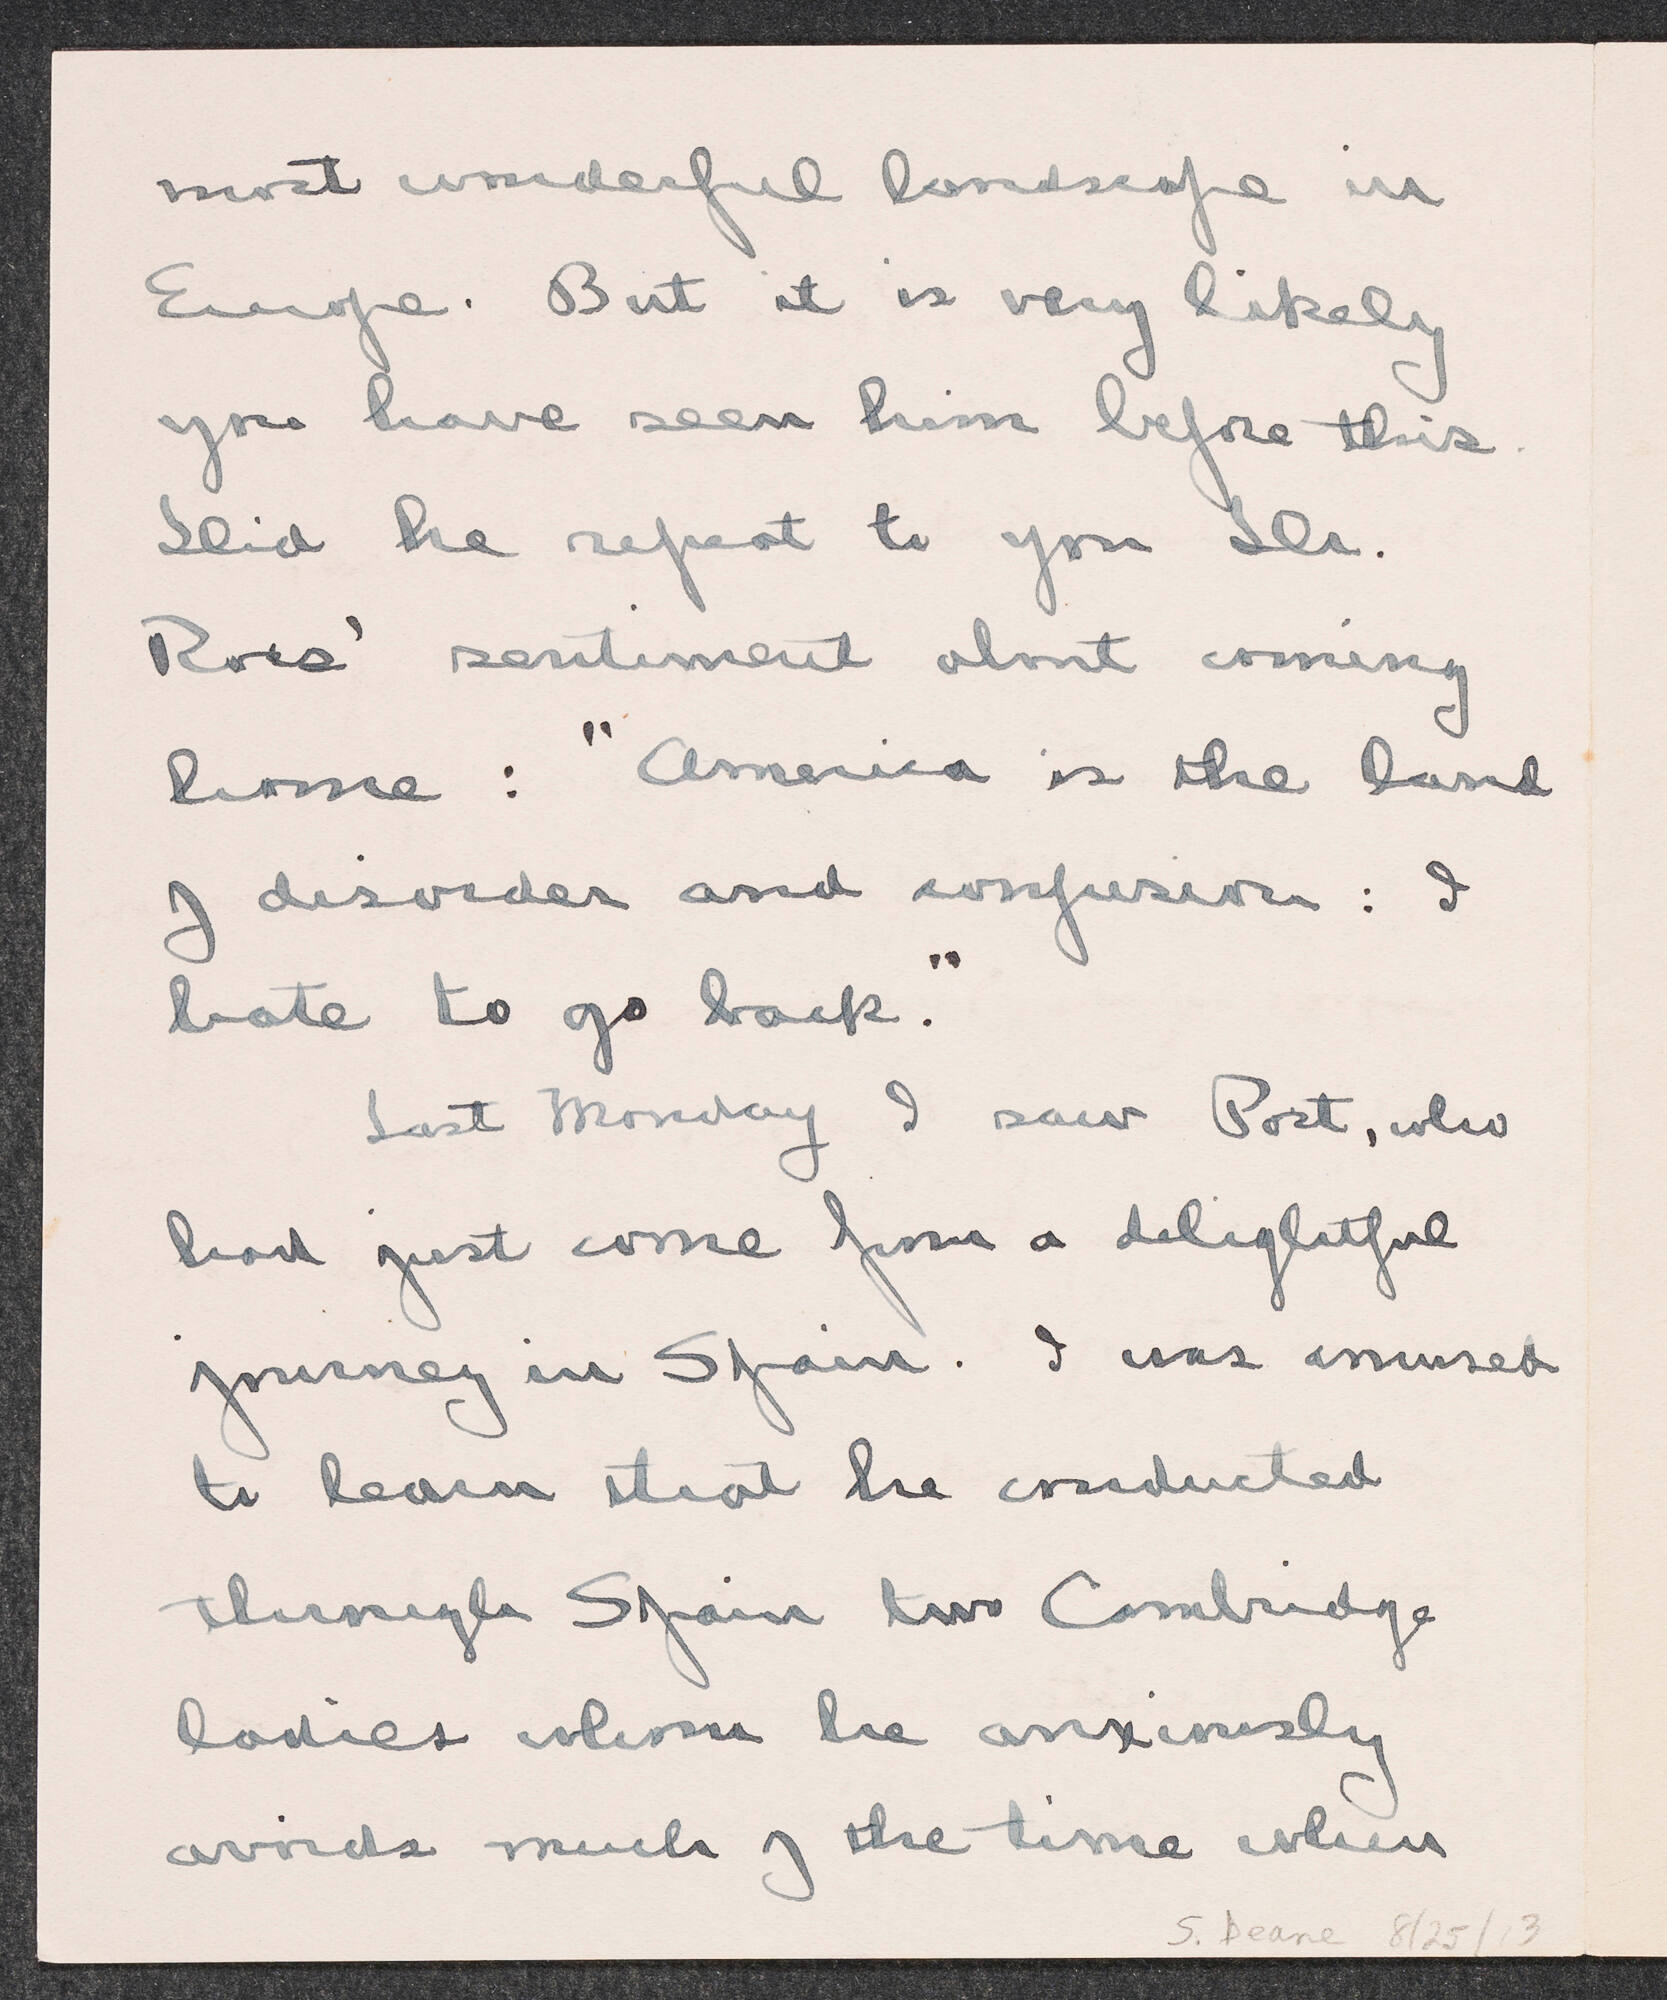 most wonderful landscape in
Europe. But it is very likely
you have seen him before this.
Did he repeat to you Dr.
Ross' sentiment about coming
home : "America is the land
of disorder and confusion : I
hate to go back."
Last Monday I saw Post, who
had just come from a delightful
journey in Spain. I was amused
to learn that he conducted
through Spain two Cambridge
ladies whom he anxiously
avoids much of the time when
S. Deane 8/25/13